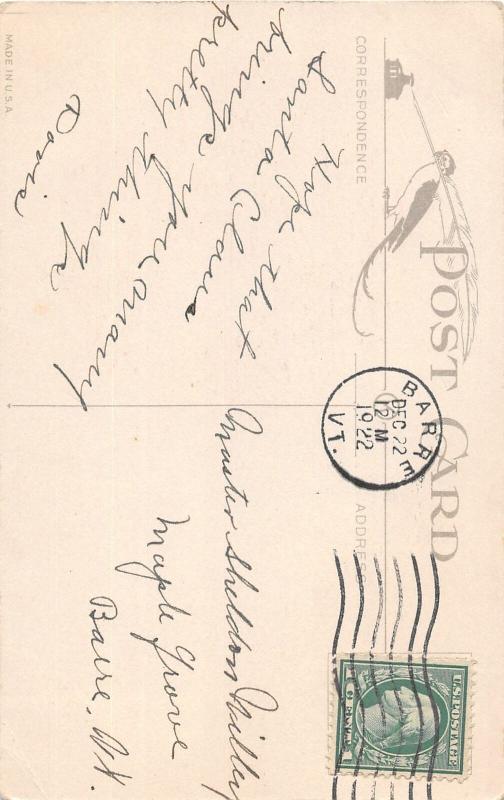 POST CARD
CORRESPONDENCE
ADDRESS
MADE IN U.S.A.
BARRE
DEC 22
12 M
1922
VT.
U.S. POSTAGE
Hope that
Santa Claus
brings you many
pretty things
Doris
Master Sheldon Milley
Maple Grove
Barre, Vt.